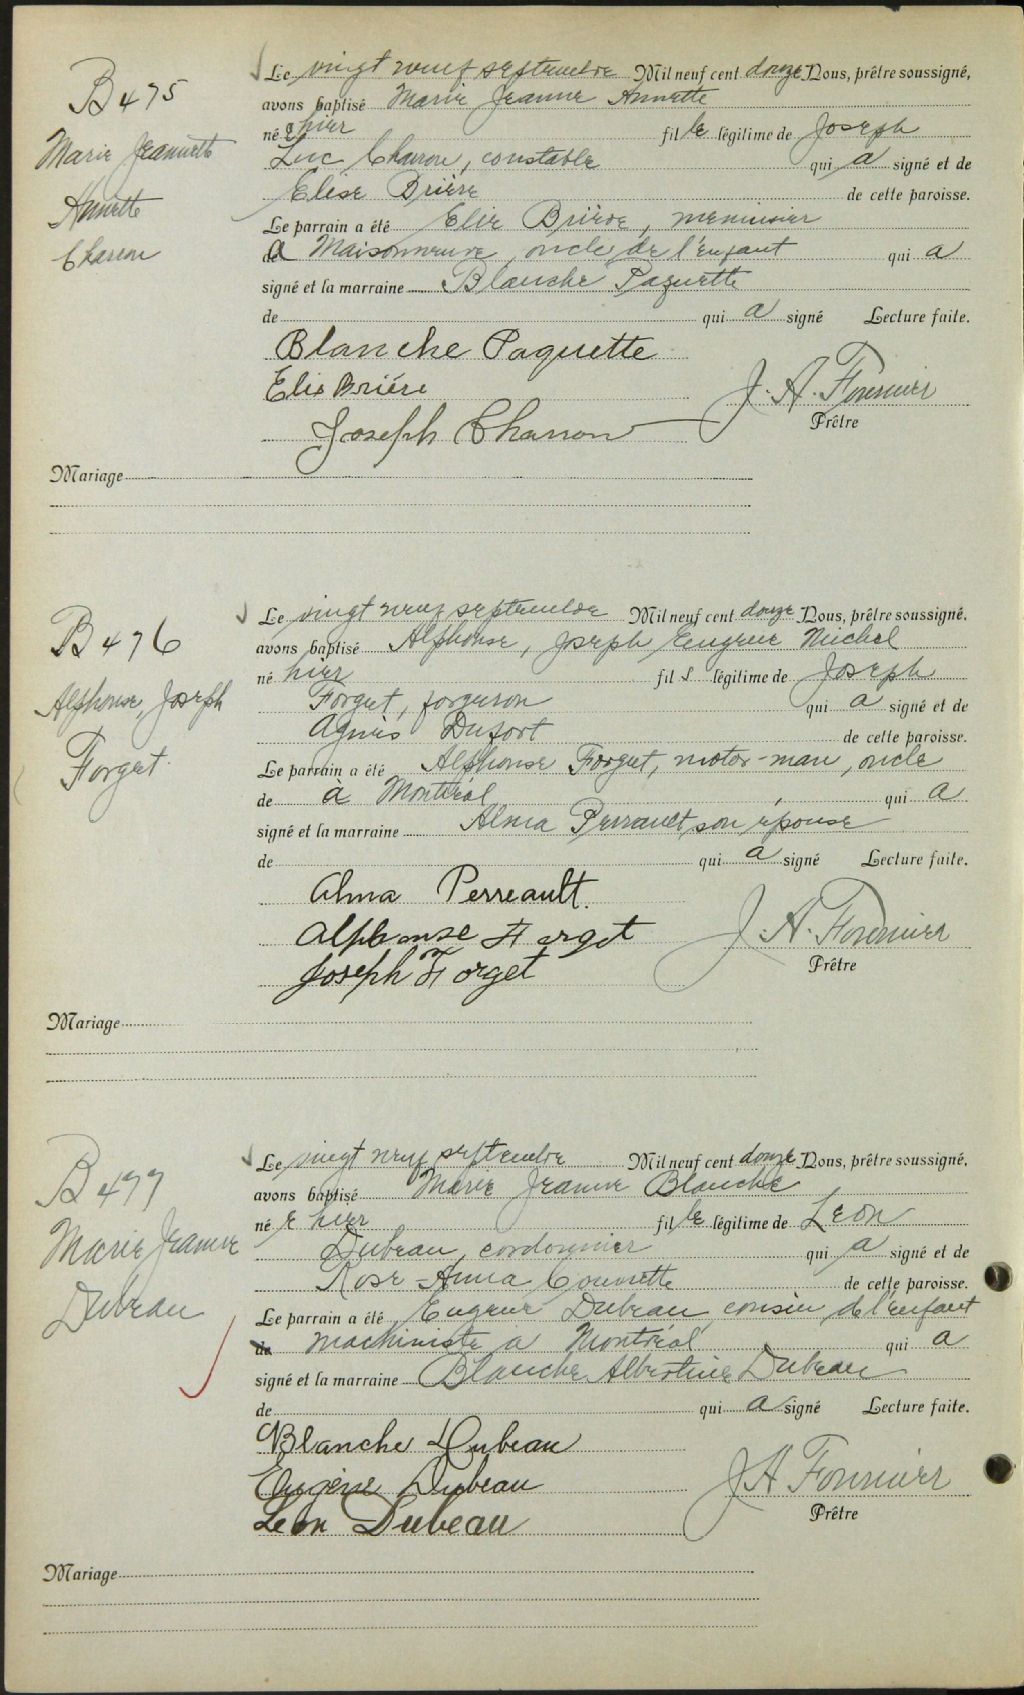 B 475
Marie Jeannette
Annette
Charron
Le vingt neuf septembre Mil neuf cent douze Nous, prêtre soussigné,
avons baptisé Marie Jeanne Annette
né e hier fil le légitime de Joseph
Luc Charron, constable qui a signé et de
Elise Brière de cette paroisse.
Le parrain a été Elie Brière, menuisier
à Maisonneuve, oncle de l'enfant qui a
signé et la marraine Blanche Paquette
de qui a signé Lecture faite.
Blanche Paquette
Elie Brière
Joseph Charron
J. A. Fournier
Prêtre
Mariage
B 476
Alphonse, Joseph
Forget
Le vingt neuf septembre Mil neuf cent douze Nous, prêtre soussigné.
avons baptisé Alphonse, Joseph Eugène Michel
né hier fil s légitime de Joseph
Forget, forgeron qui a signé et de
Agnès Dufort de cette paroisse.
Le parrain a été Alphonse Forget, motor-man, oncle
de à Montréal qui a
signé et la marraine Alma Perrault, son épouse
de qui a signé Lecture faite.
Alma Perreault.
Alphonse Forget
Joseph Forget
J. A. Fournier
Prêtre
Mariage
B 477
Marie Jeanne
Dubeau
Le vingt neuf septembre Mil neuf cent douze Nous, prêtre soussigné.
avons baptisé Marie Jeanne Blanche
né e hier fil le légitime de Léon
Dubeau, cordonnier qui a signé et de
Rose-Anna de cette paroisse.
Le parrain a été Eugène Dubeau, cousin de l'enfant
de machiniste à Montréal qui a
signé et la marraine Blanche Albertine Dubeau
de qui a signé Lecture faite.
Blanche Dubeau
Eugène Dubeau
Léon Dubeau
J A Fournier
Prêtre
Mariage